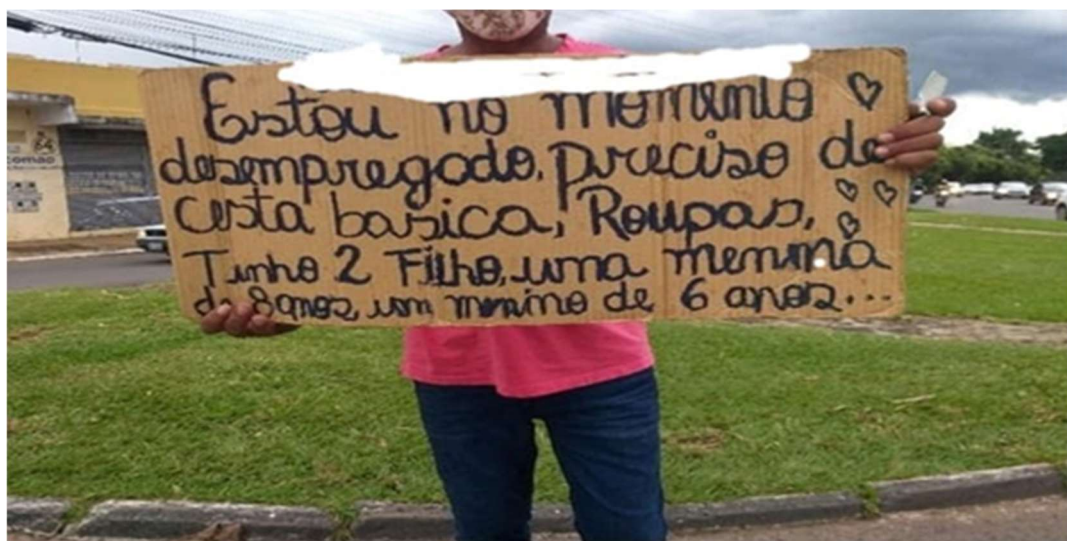 Estou no momento
desempregado, preciso de
cesta basica, Roupas,
Tenho 2 Filho, uma menina
de 8 anos, um menino de 6 anos...